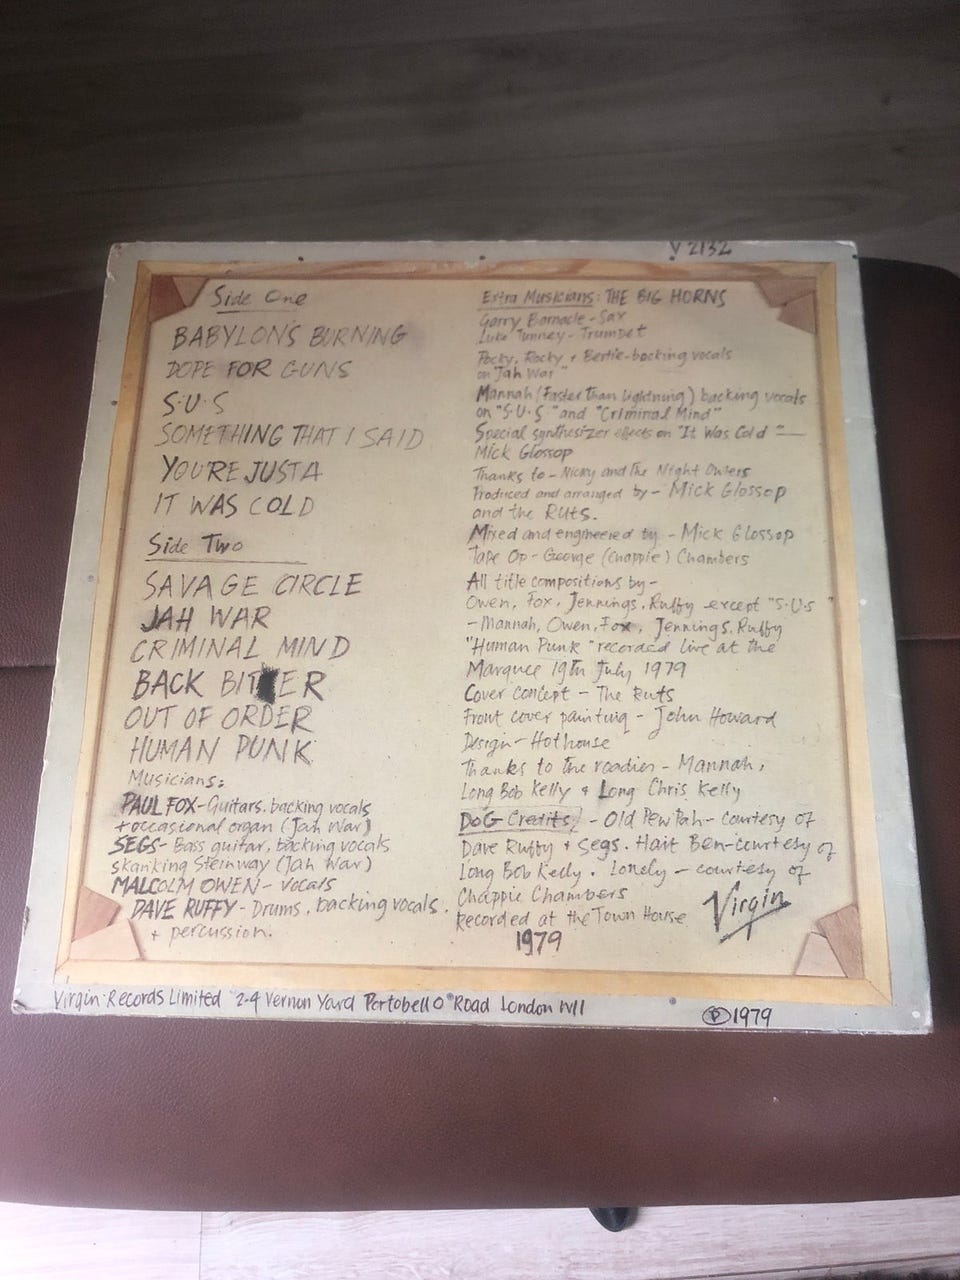 V 2132
Side One
BABYLON'S BURNING
DOPE FOR GUNS
S·U·S
SOMETHING THAT I SAID
YOU'RE JUST A
IT WAS COLD
Side Two
SAVAGE CIRCLE
JAH WAR
CRIMINAL MIND
BACK BITER
OUT OF ORDER
HUMAN PUNK
Musicians:
PAUL FOX - Guitars, backing vocals
+ occasional organ (Jah War)
SEGS - Bass guitar, backing vocals
skanking Steinway (Jah War)
MALCOLM OWEN - vocals
DAVE RUFFY - Drums, backing vocals
+ percussion.
Extra Musicians: THE BIG HORNS
Garry Barnacle - Sax
Luke Tunney - Trumpet
Pocky, Rocky + Bertie - backing vocals
on "Jah War"
Mannah (Faster than Lightning) backing vocals
on "S·U·S" and "Criminal Mind"
Special synthesizer effects on "It Was Cold" -
Mick Glossop
Thanks to - Nicky and The Night Owlers
Produced and arranged by - Mick Glossop
and the Ruts.
Mixed and engineered by - Mick Glossop
Tape Op - George (Chappie) Chambers
All title compositions by -
Owen, Fox, Jennings, Ruffy except "S·U·S"
- Mannah, Owen, Fox, Jennings, Ruffy
"Human Punk" recorded live at the
Marquee 19th July 1979
Cover concept - The Ruts
Front cover painting - John Howard
Design - Hothouse
Thanks to the roadies - Mannah,
Long Bob Kelly + Long Chris Kelly
DOG Credits - Old Pew Pah - courtesy of
Dave Ruffy + Segs. Hait Ben - courtesy of
Long Bob Kelly. Lonely - courtesy of
Chappie Chambers
Recorded at the Town House
1979
Virgin
Virgin Records Limited 2-4 Vernon Yard Portobello Road London W11
Ⓟ 1979